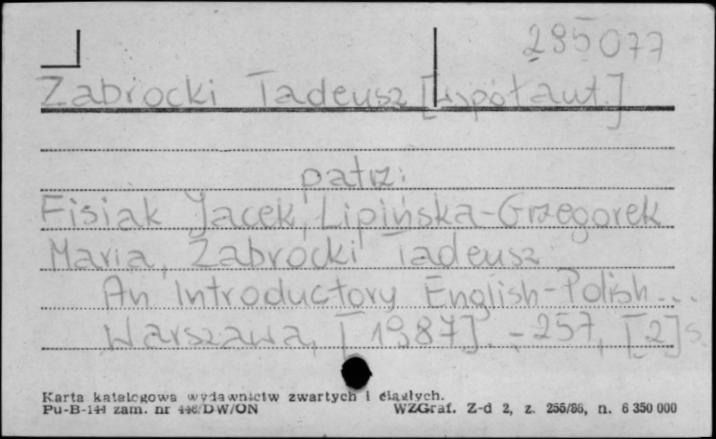 285077
Zabrocki Tadeusz [współaut.]
patrz:
Fisiak Jacek, Lipińska-Grzegorek
Maria, Zabrocki Tadeusz
An Introductory English-Polish...
Warszawa, [1987]. - 257, [2] s.
Karta katalogowa wydawnictw zwartych i ciągłych.
Pu-B-144 zam. nr 446/DW/ON WZGraf. Z-d 2, z. 255/86, n. 6 350 000